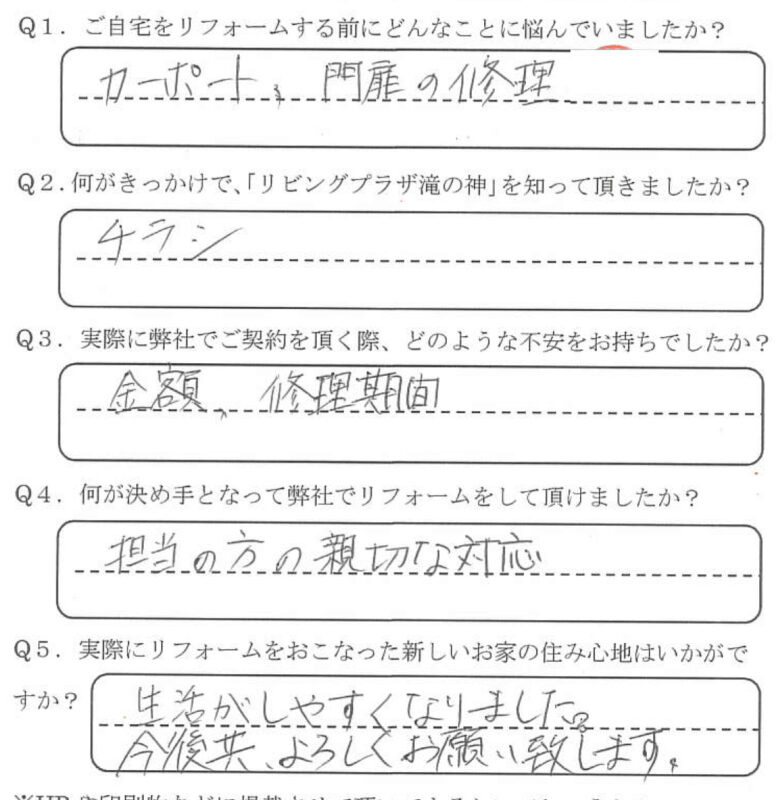 Q1．ご自宅をリフォームする前にどんなことに悩んでいましたか？
カーポート、門扉の修理
Q2．何がきっかけで、「リビングプラザ滝の神」を知って頂きましたか？
チラシ
Q3．実際に弊社でご契約を頂く際、どのような不安をお持ちでしたか？
金額、修理期間
Q4．何が決め手となって弊社でリフォームをして頂けましたか？
担当の方の親切な対応
Q5．実際にリフォームをおこなった新しいお家の住み心地はいかがで
すか？
生活がしやすくなりました。
今後共、よろしくお願い致します。